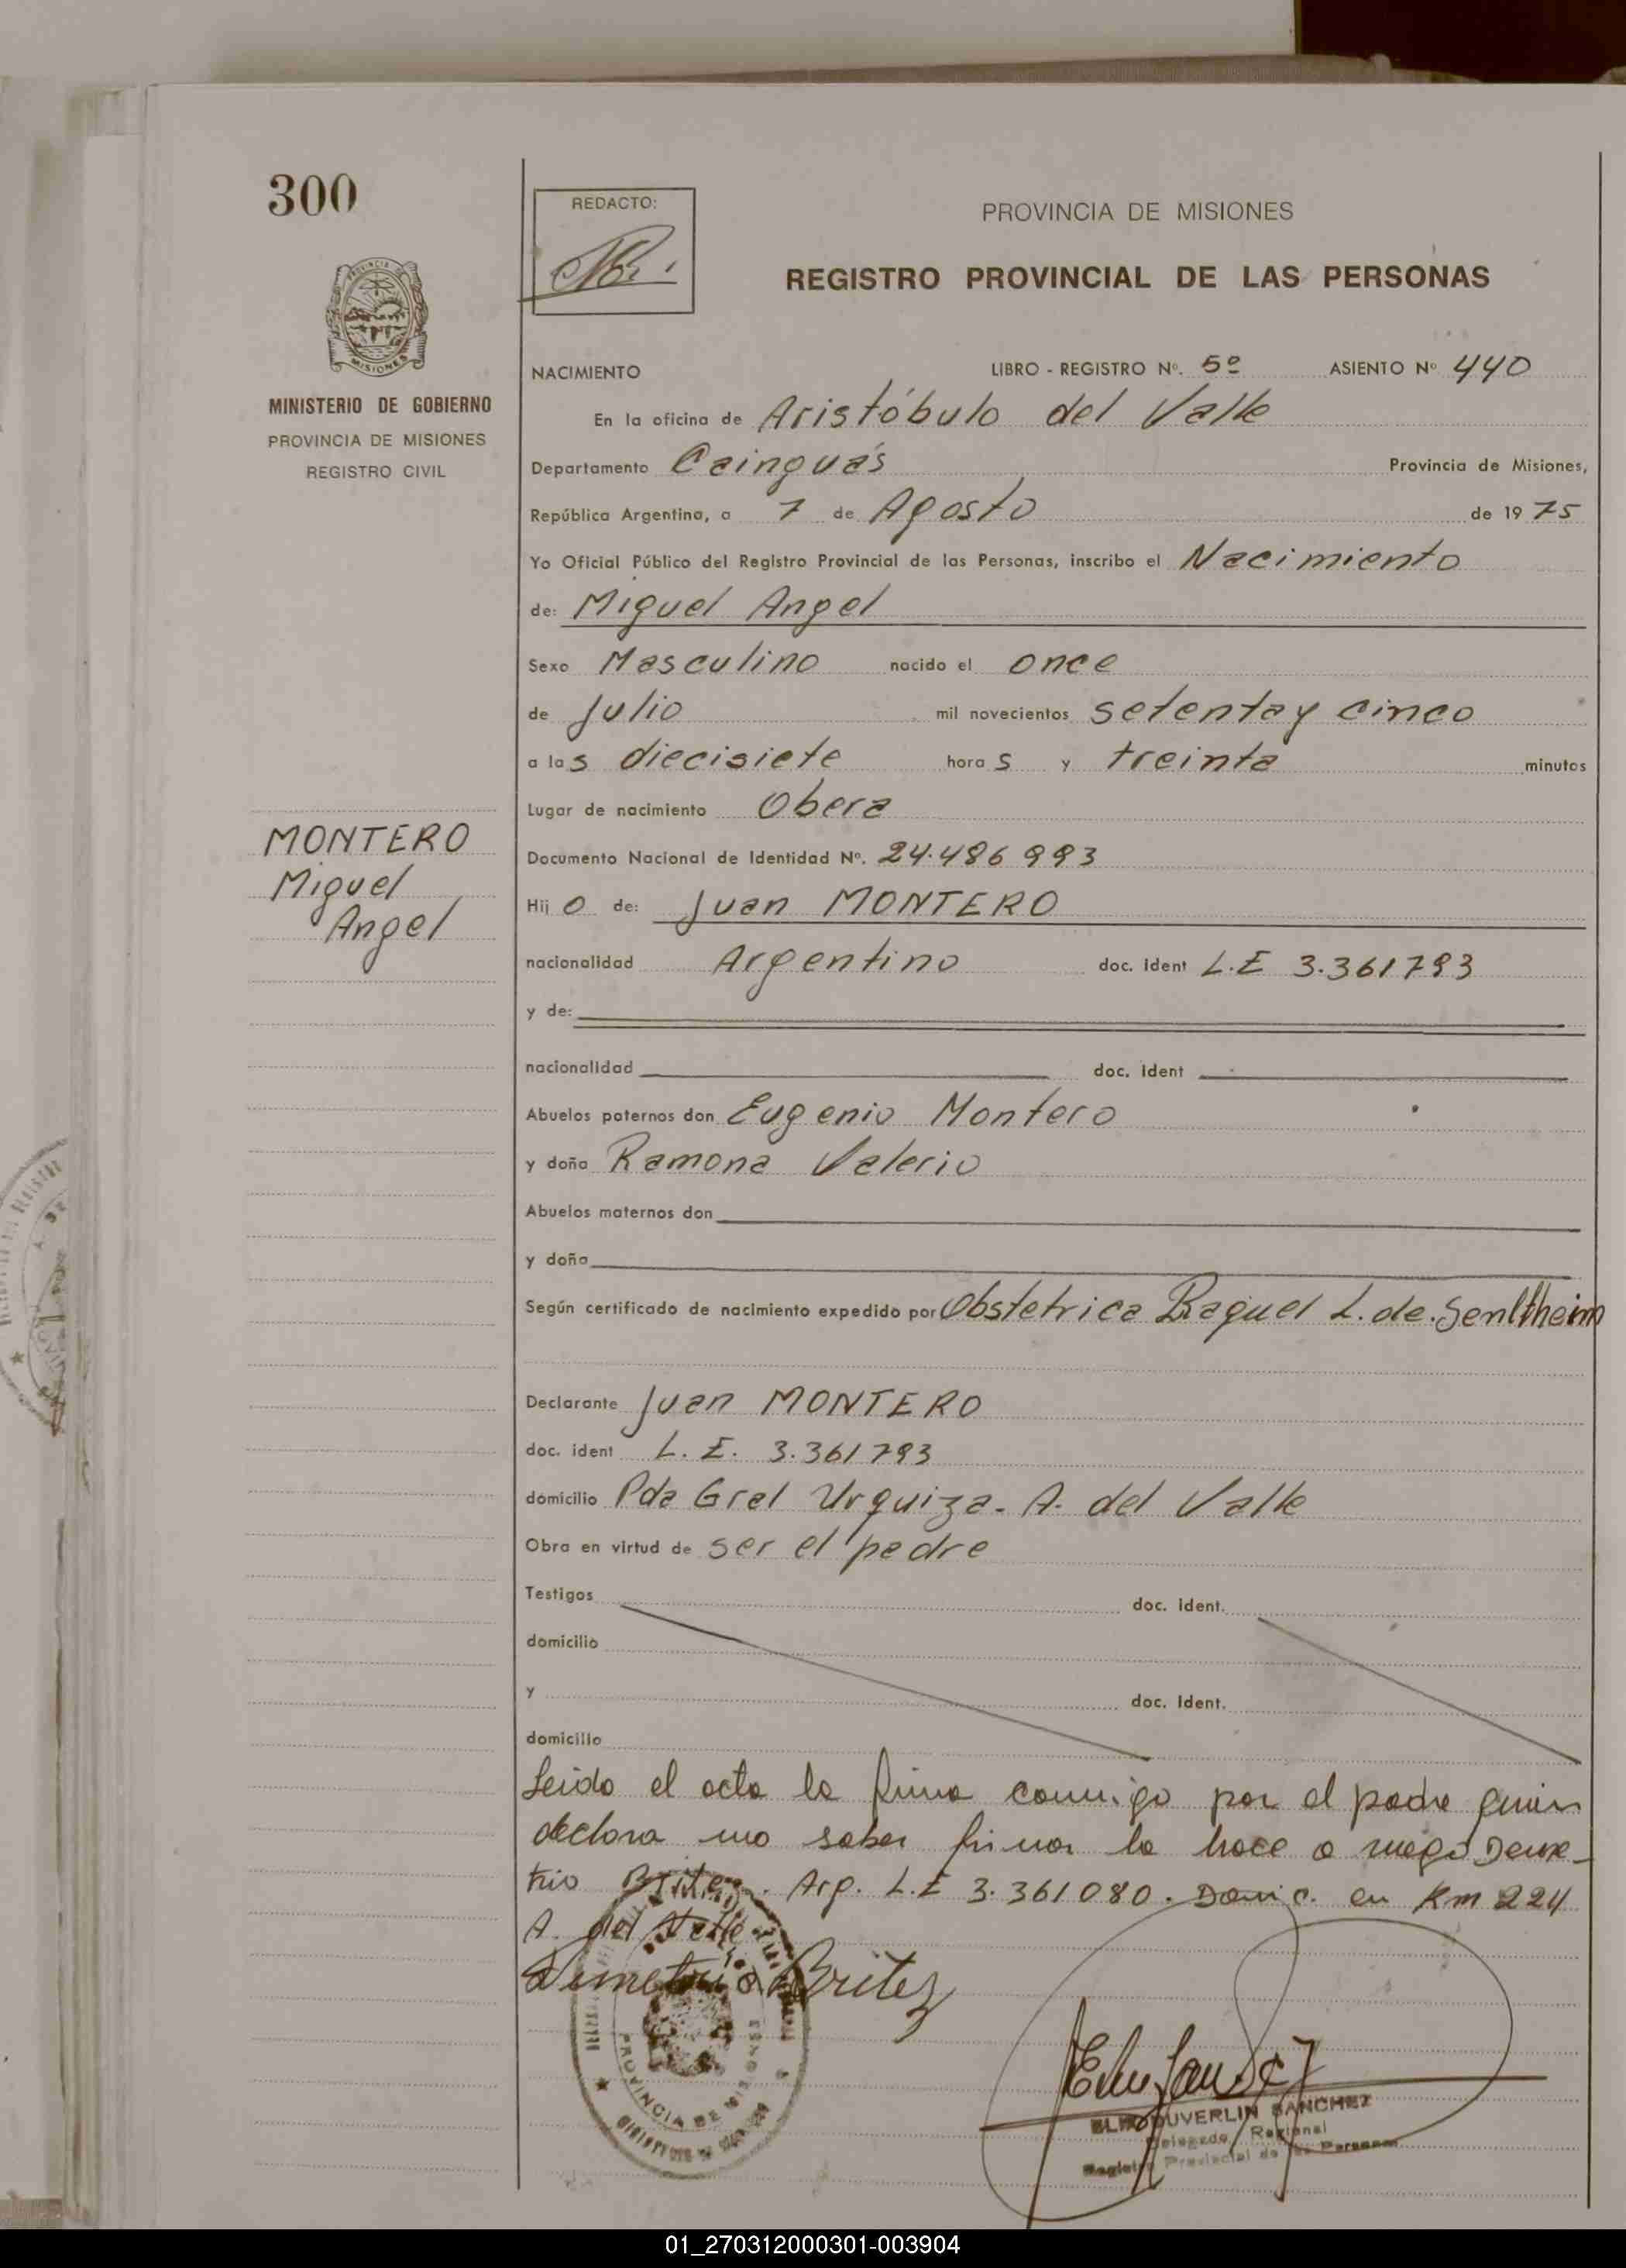 300
REDACTO:
PROVINCIA DE MISIONES
REGISTRO PROVINCIAL DE LAS PERSONAS
MISIONES
MINISTERIO DE GOBIERNO
PROVINCIA DE MISIONES
REGISTRO CIVIL
NACIMIENTO LIBRO - REGISTRO Nº. 5º ASIENTO Nº 440
En la oficina de Aristóbulo del Valle
Departamento Cainguás Provincia de Misiones,
República Argentina, a 7 de Agosto de 1975
Yo Oficial Público del Registro Provincial de las Personas, inscribo el Nacimiento
de: Miguel Angel
Sexo Masculino nacido el once
de Julio mil novecientos setenta y cinco
a las diecisiete horas y treinta minutos
Lugar de nacimiento Obera
MONTERO
Miguel
Angel
Documento Nacional de Identidad Nº. 24.486 993
Hijo de: Juan MONTERO
nacionalidad Argentino doc. ident L.E 3.361793
y de:
nacionalidad doc. ident
Abuelos paternos don Eugenio Montero
y doña Ramona Valerio
Abuelos maternos don
y doña
Según certificado de nacimiento expedido por Obstetrica Raquel L. de.
Declarante Juan MONTERO
doc. ident L. E. 3.361793
domicilio Pda Gral Urquiza - A. del Valle
Obra en virtud de ser el padre
Testigos doc. ident.
domicilio
y doc. ident.
domicilio
Leida el acta la firma conmigo por el padre quien
declara no saber firmar lo hace a ruego Deme-
trio Britez. Arg. L.E 3.361080. Domic. en Km 224
A. del Valle
Demetrio Britez
PROVINCIA DE MISIONES
SANCHEZ
Delegado Regional
Registro Provincial de las Personas
01_270312000301-003904